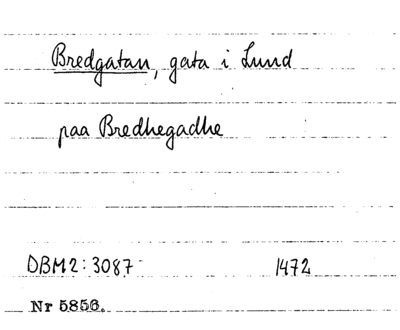 Bredgatan, gata i Lund
paa Bredhegadhe
DBM2:3087 1472
Nr 5856.